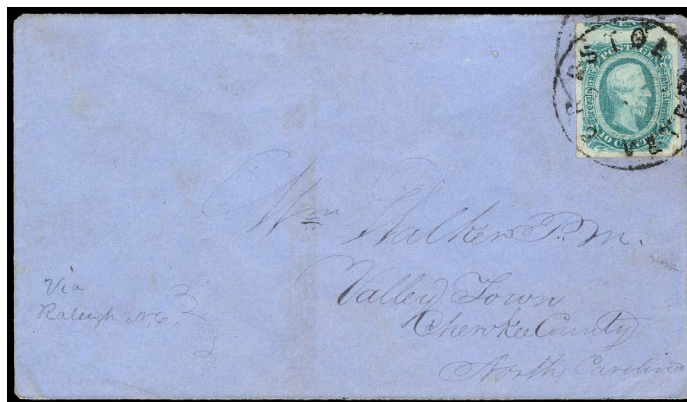 POSTAGE
10 CENTS
Wm Walker P.M.
Valley Town
Cherokee County
North Carolina
Via
Raleigh N.C.